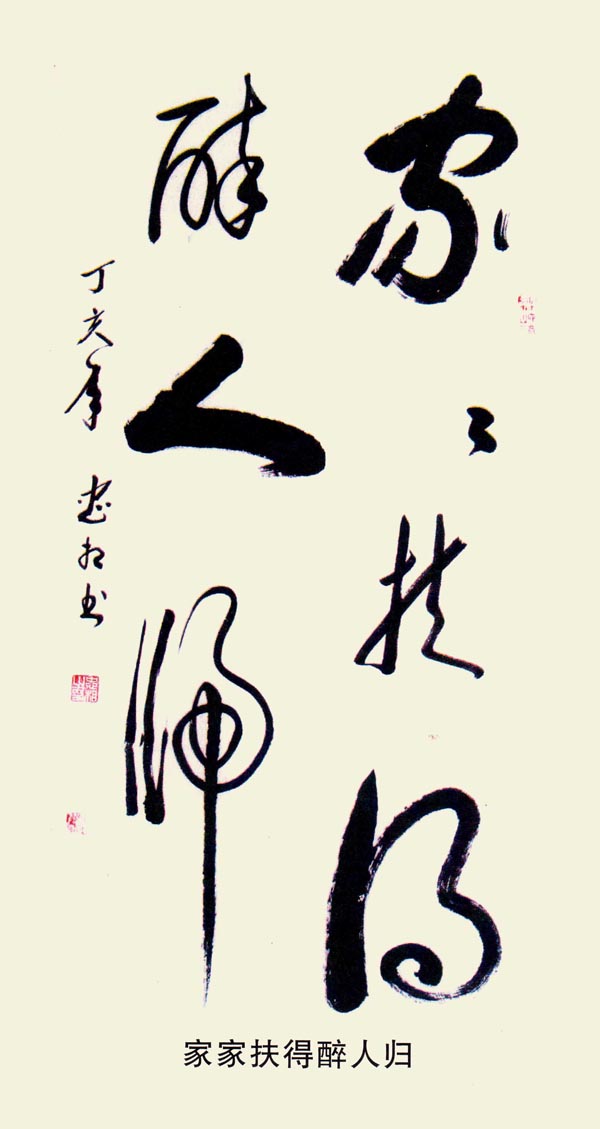 家〻扶得
醉人归
丁亥年 忠相书
家家扶得醉人归